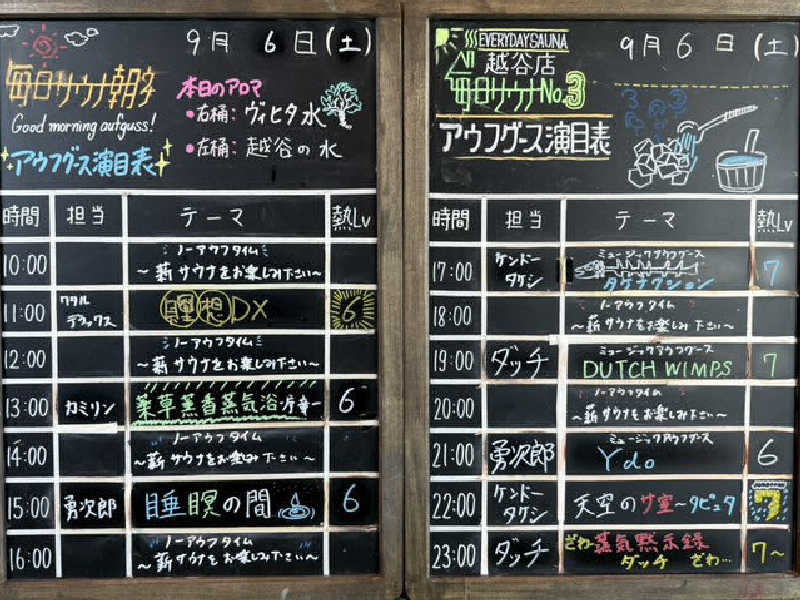 9月 6日(土)
毎日サウナ朝夕
Good morning aufguss!
アウフグース演目表
本日のアロマ
•右桶:ヴィヒタ水
•左桶:越谷の水
時間 担当 テーマ 熱Lv
10:00 ノーアウフタイム
〜薪サウナをお楽しみ下さい〜
11:00 ワタルデラックス 瞑想DX 6
12:00 ノーアウフタイム
〜薪サウナをお楽しみ下さい〜
13:00 カミリン 薬草薫香蒸気浴 6
14:00 ノーアウフタイム
〜薪サウナをお楽しみ下さい〜
15:00 勇次郎 睡瞑の間 6
16:00 ノーアウフタイム
〜薪サウナをお楽しみ下さい〜
EVERYDAY SAUNA
越谷店
9月6日(土)
毎日サウナNo.3
アウフグース演目表
時間 担当 テーマ 熱Lv
17:00 ケンドータケシ ミュージックアウフグース
タケナクション 7
18:00 ノーアウフタイム
〜薪サウナをお楽しみ下さい〜
19:00 ダッチ ミュージックアウフグース
DUTCH WIMPS 7
20:00 ノーアウフタイム
〜薪サウナをお楽しみ下さい〜
21:00 勇次郎 ミュージックアウフグース
Ydo 6
22:00 ケンドータケシ 天空のサ室〜タピュタ 7
23:00 ダッチ ざわ…蒸気黙示録
ダッチ ざわ… 7〜